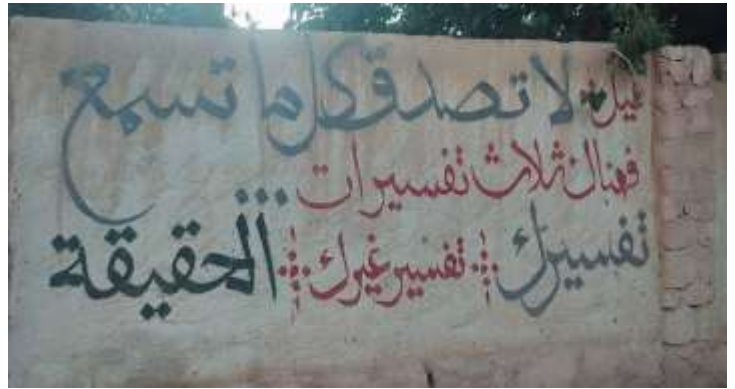 قيل: لا تصدق كل ما تسمع
فهناك ثلاث تفسيرات...
تفسيرك تفسير غيرك الحقيقة